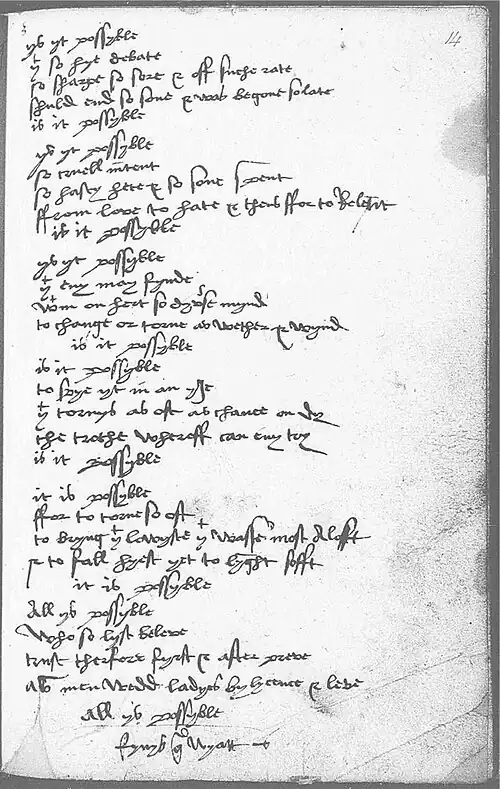 14
ys yt possyble
yt so hye debate
so sharpe so sore & off suche rate
shuld end so sone & was begone so late
is it possyble
ys yt possyble
so cruell intent
so hasty hete & so sone spent
ffrom love to hate & thens ffor to Relent
is it possyble
ys yt possyble
yt eny may fynde
wtin on hert so dyverse mynd
to change or torne as wether & wynd
is it possyble
is it possyble
to spye yt in an yIe
yt tornys as oft as chance on dy
the trothe wheroff can eny try
is it possyble
it is possyble
ffor to torne so oft
to bryng yt lowyste yt wasse most Alofft
& to fall hyest yet to lyght sofft
it is possyble
All ys possyble
Who so lyst beleve
trust therfore fyrst & after preve
As men wedd ladyes by lycence & leve
All ys possyble
fynys qd Wyatt